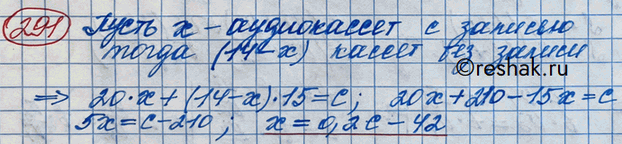 291 Пусть x - аудиокассет с записью
тогда (14-x) кассет без записи
©reshak.ru
⇒ 20·x + (14-x)·15 = c; 20x + 210 - 15x = c
5x = c - 210; x = 0,2c - 42